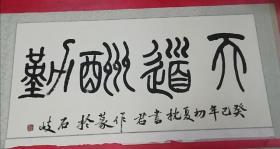 天道酬勤
癸巳年初夏桃書君作篆於石岐